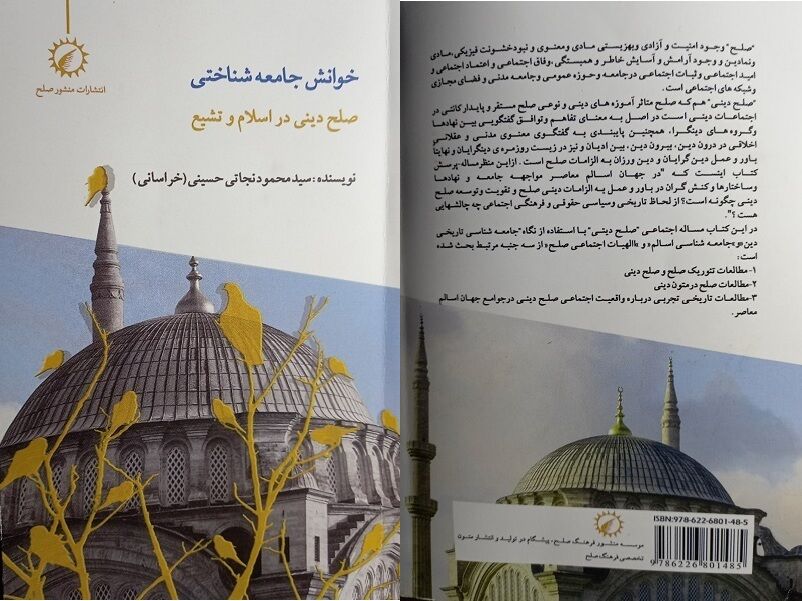 انتشارات منشور صلح
خوانش جامعه شناختی
صلح دینی در اسلام و تشیع
نویسنده: سید محمود نجاتی حسینی (خراسانی)
"صلح" وجود امنیت و آزادی وبهزیستی مادی ومعنوی و نبودخشونت فیزیکی،مادی
ونمادین و وجود آرامش و آسایش خاطر و همبستگی،وفاق اجتماعی و اعتماد اجتماعی و
امید اجتماعی و ثبات اجتماعی درجامعه و حوزه عمومی وجامعه مدنی و فضای مجازی
وشبکه های اجتماعی است.
"صلح دینی" هم که صلح متاثر آموزه های دینی و نوعی صلح مستقر و پایدارکانتی در
اجتماعات دینی است در اصل به معنای تفاهم وتوافق گفتگویی بین نهادها
وگروه های دینگرا، همچنین پایبندی به گفتگوی معنوی مدنی و عقلانی
اخلاقی در درون دین، بیرون دین، بین ادیان و نیز در زیست روزمره ی دینگرایان و نهایتا
باور و عمل دین گرایان و دین ورزان به الزامات صلح است . ازاین منظرمساله-پرسش
کتاب اینست که "در جهان اسالم معاصر مواجهه جامعه و نهادها
وساختارها و کنش گران در باور و عمل به الزامات دینی صلح و تقویت وتوسعه صلح
دینی چگونه است؟ از لحاظ تاریخی وسیاسی حقوقی و فرهنگی اجتماعی چه چالشهایی
هست ؟".
در این کتاب مساله اجتماعی "صلح دینی" با استفاده از نگاه "جامعه شناسی تاریخی
دین«و»جامعه شناسی اسالم» و «الهیات اجتماعی صلح» از سه جنبه مرتبط بحث شده
است :
۱-مطالعات تئوریک صلح و صلح دینی
۲-مطالعات صلح درمتون دینی
۳-مطالعات تاریخی تجربی درباره واقعیت اجتماعی صلح دینی درجوامع جهان اسالم
معاصر.
موسسه منشور فرهنگ صلح، پیشگام در تولید و انتشار متون
تخصصی فرهنگ صلح
ISBN:978-622-6801-48-5
9 786226 801485